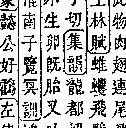 物肉翅連尾
上林賦蜼玃飛
切集韻龍都
生卵胎又以
南子覽冥訓
懿公好鶴左